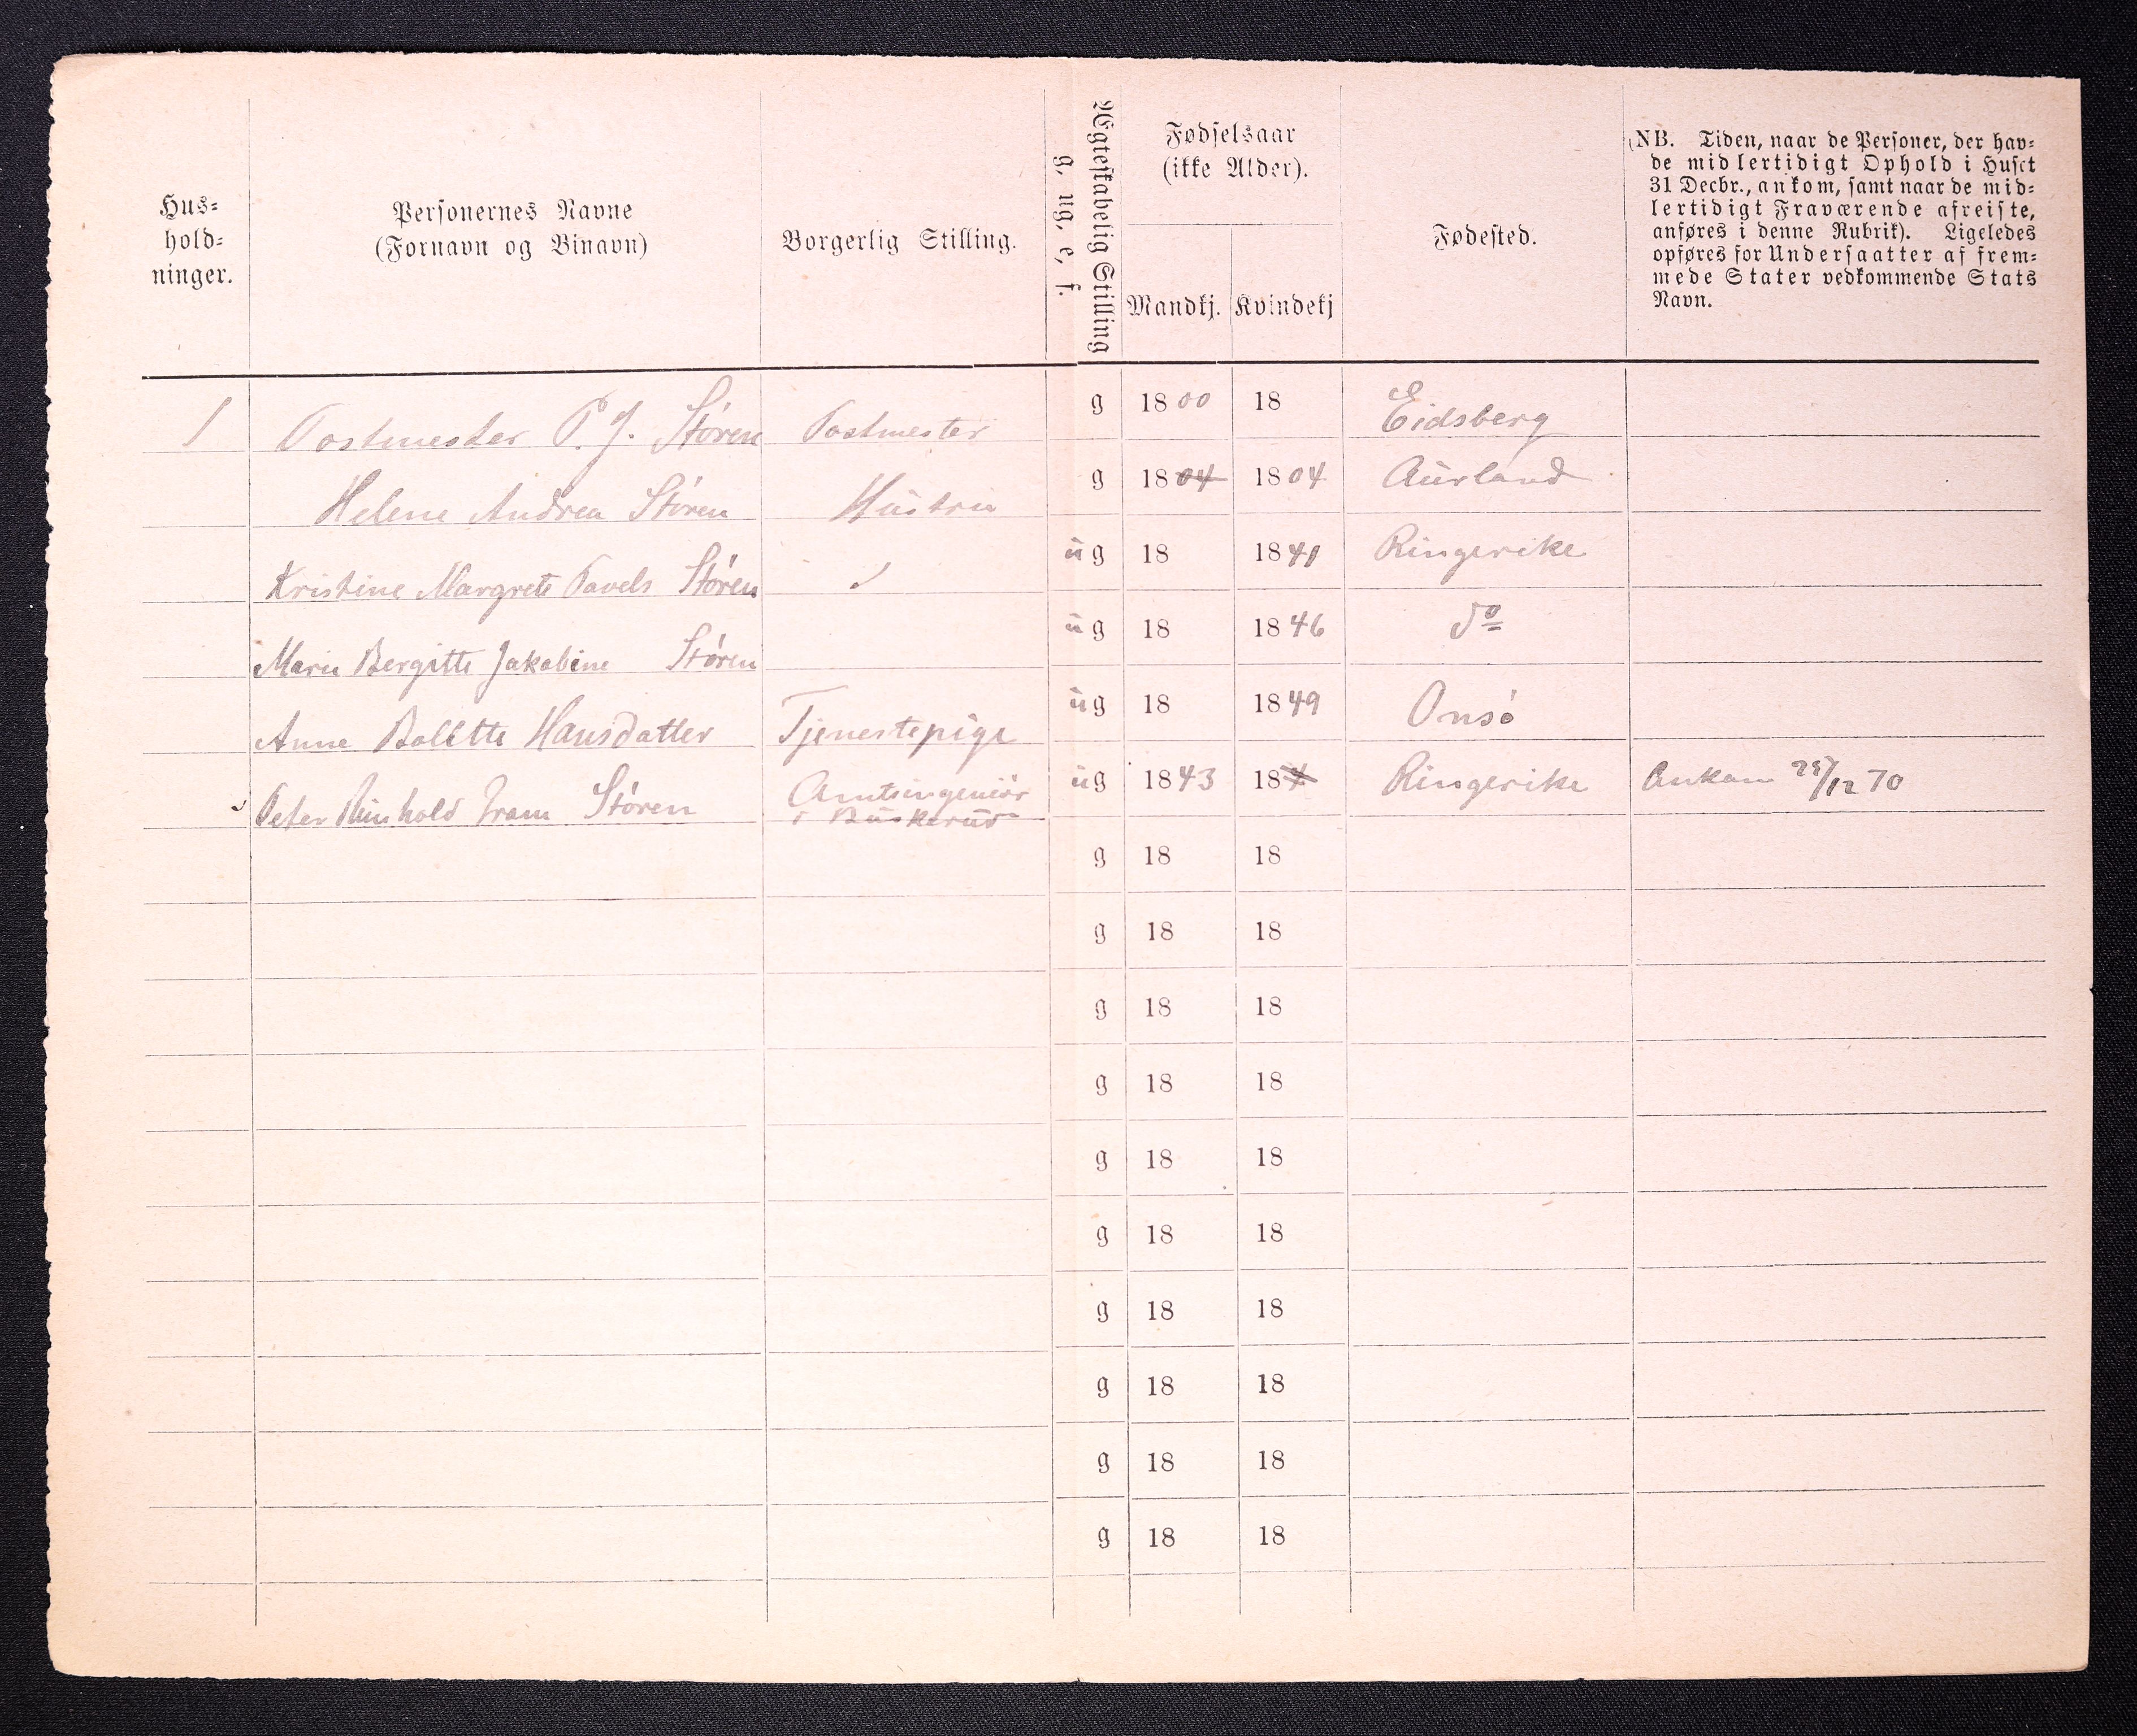 Hus-
hold-
ninger.
Personernes Navne
(Fornavn og Binavn)
Borgerlig Stilling.
Ægteskabelig Stilling
g, ug, e, f.
Fødselsaar
(ikke Alder).
Mandkj. Kvindekj
Fødested.
(NB. Tiden, naar de Personer, der hav-
de midlertidigt Ophold i Huset
31 Decbr., ankom, samt naar de mid-
lertidigt Fraværende afreiste,
anføres i denne Rubrik). Ligeledes
opføres for Undersaatter af frem-
mede Stater vedkommende Stats
Navn.
1 Postmester P. J. Stören Postmester g 1800 18 Eidsberg
Helene Andrea Stören Hustru g 1804 1804 Aurland
Kristine Margrete Pavels Stören ug 18 1841 Ringerike
Marie Bergitte Jakobine Stören ug 18 1846 do
Anne Bolette Hansdatter Tjenestepige ug 18 1849 Onsö
Peter Reinhold Stören Amtsingeniör ug 1843 184 Ringerike Ankom 28/12 70
i Buskerud
g 18 18
g 18 18
g 18 18
g 18 18
g 18 18
g 18 18
g 18 18
g 18 18
g 18 18
g 18 18